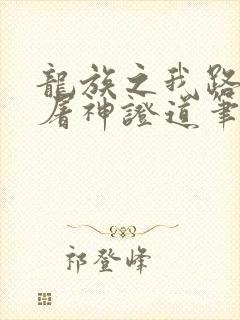 龍族之我路
屠神證道筆
祁登峰